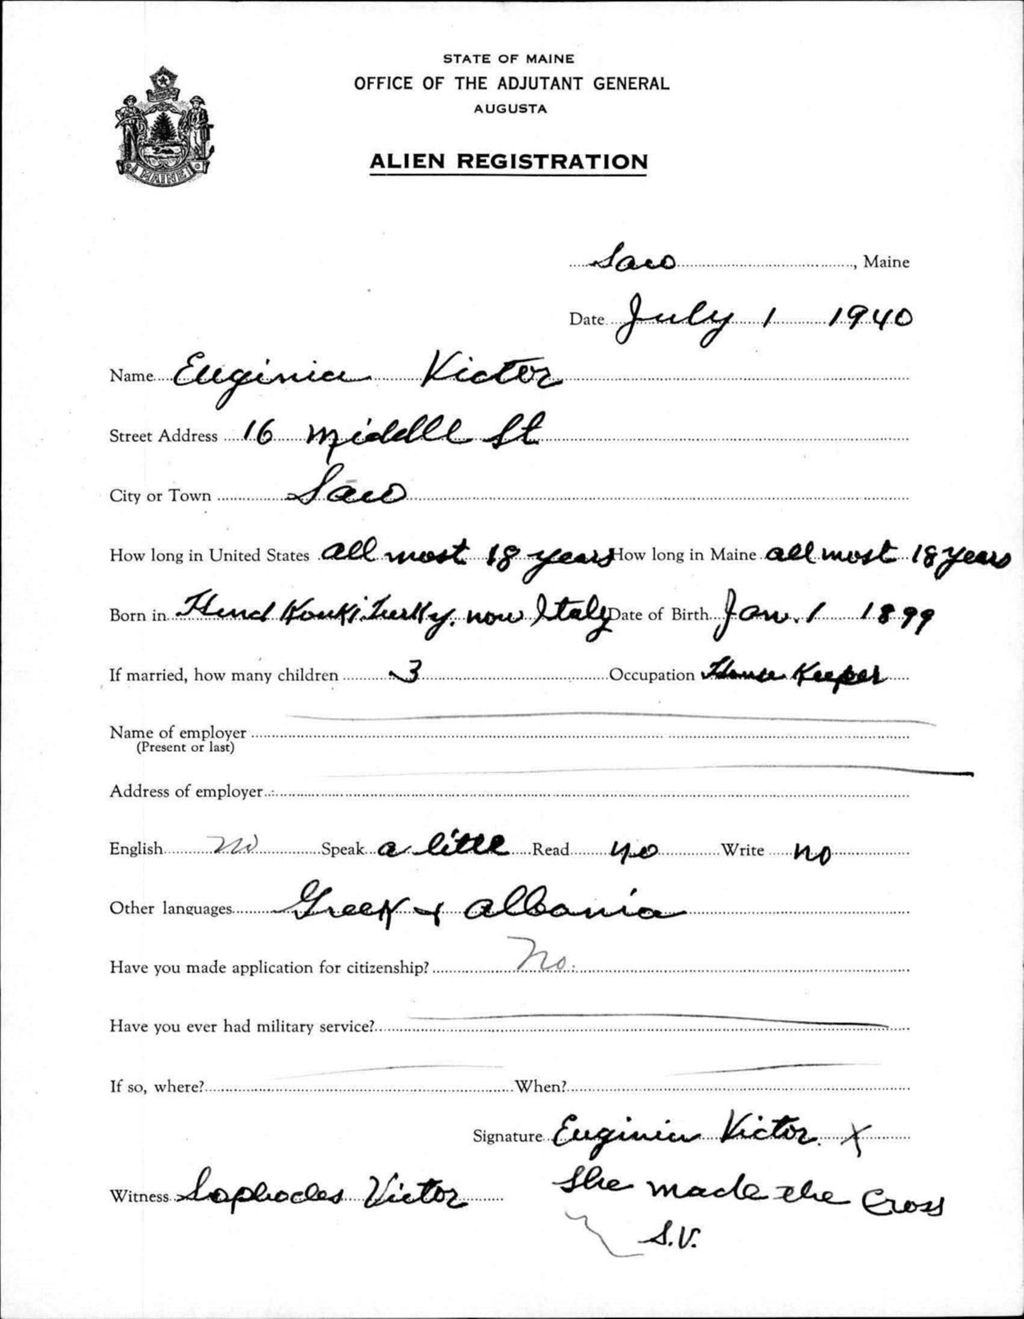 STATE OF MAINE
OFFICE OF THE ADJUTANT GENERAL
AUGUSTA
ALIEN REGISTRATION
MAINE
Saco, Maine
Date July 1 1940
Name Euginia Victor
Street Address 16 Middle St
City or Town Saco
How long in United States all most 18 years How long in Maine all most 18 years
Born in Kouki Turkey. now Italy Date of Birth Jan. 1 1899
If married, how many children 3 Occupation House Keeper
Name of employer
(Present or last)
Address of employer
English no Speak a little Read no Write no
Other languages Greek + Albania
Have you made application for citizenship? No.
Have you ever had military service?
If so, where? When?
Signature Euginia Victor X
Witness Sophocles Victor She made the Cross
S.V.